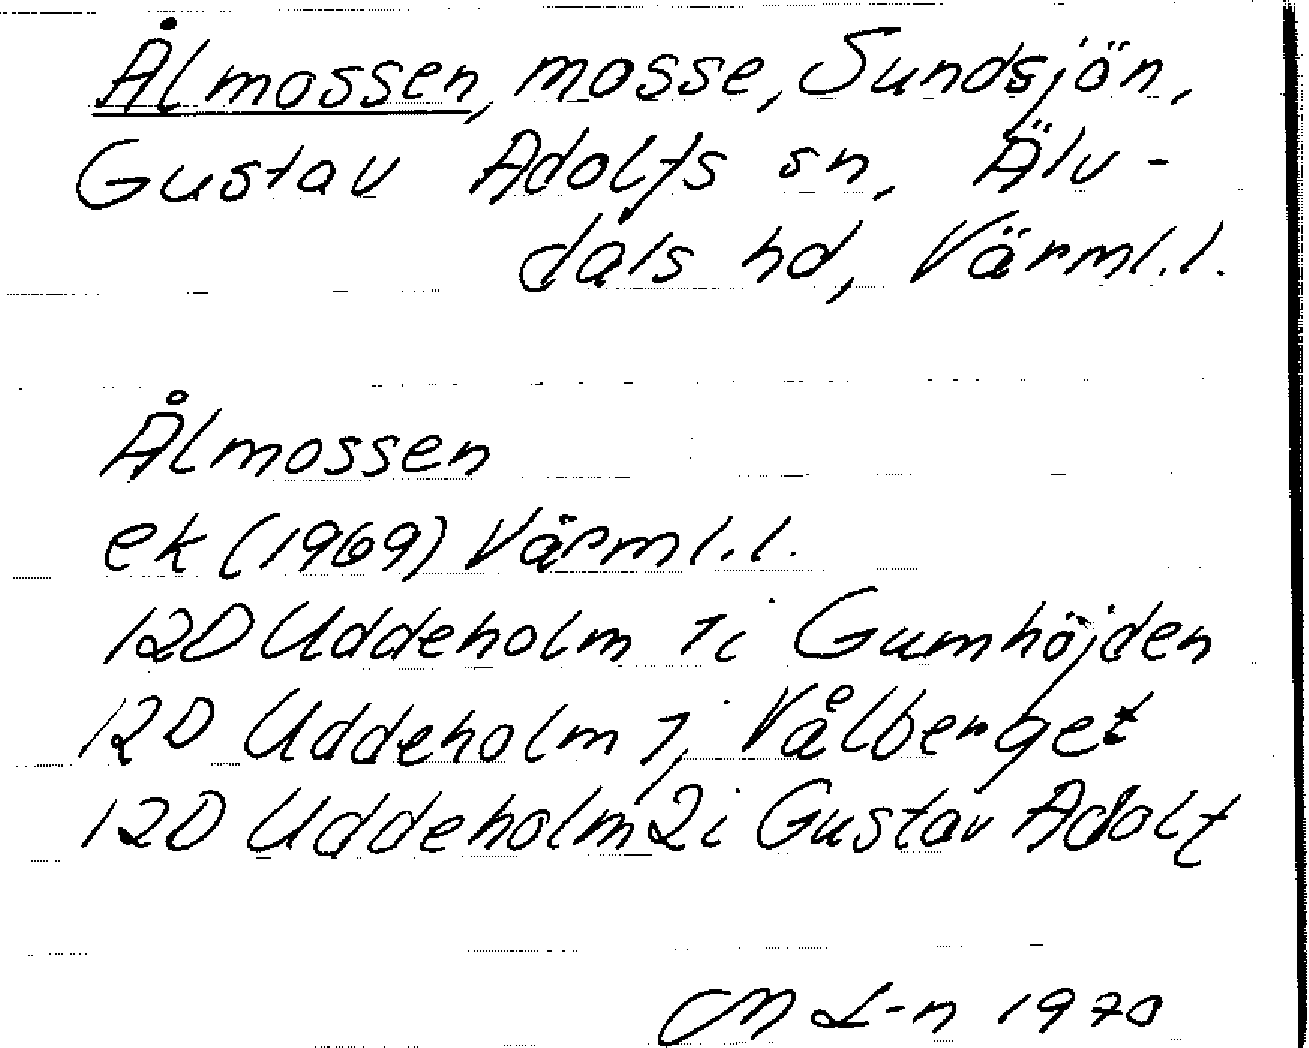 Ålmossen, mosse, Sundsjön,
Gustav Adolfs sn, Älv-
dals hd, Värml.l.
Ålmossen
ek (1969) Värml.l.
12D Uddeholm 1i Gumhöjden
12D Uddeholm 1j Vålberget
12D Uddeholm 2i Gustav Adolf
M L-n 1970